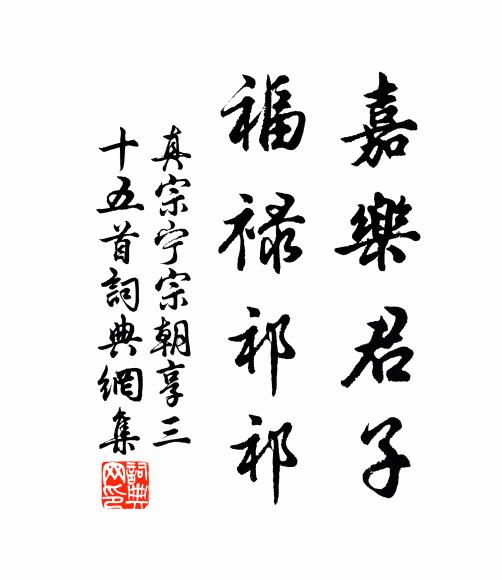 嘉樂君子
福禄祁祁
真宗宁宗朝享三
十五首詞典網集
詞典网印